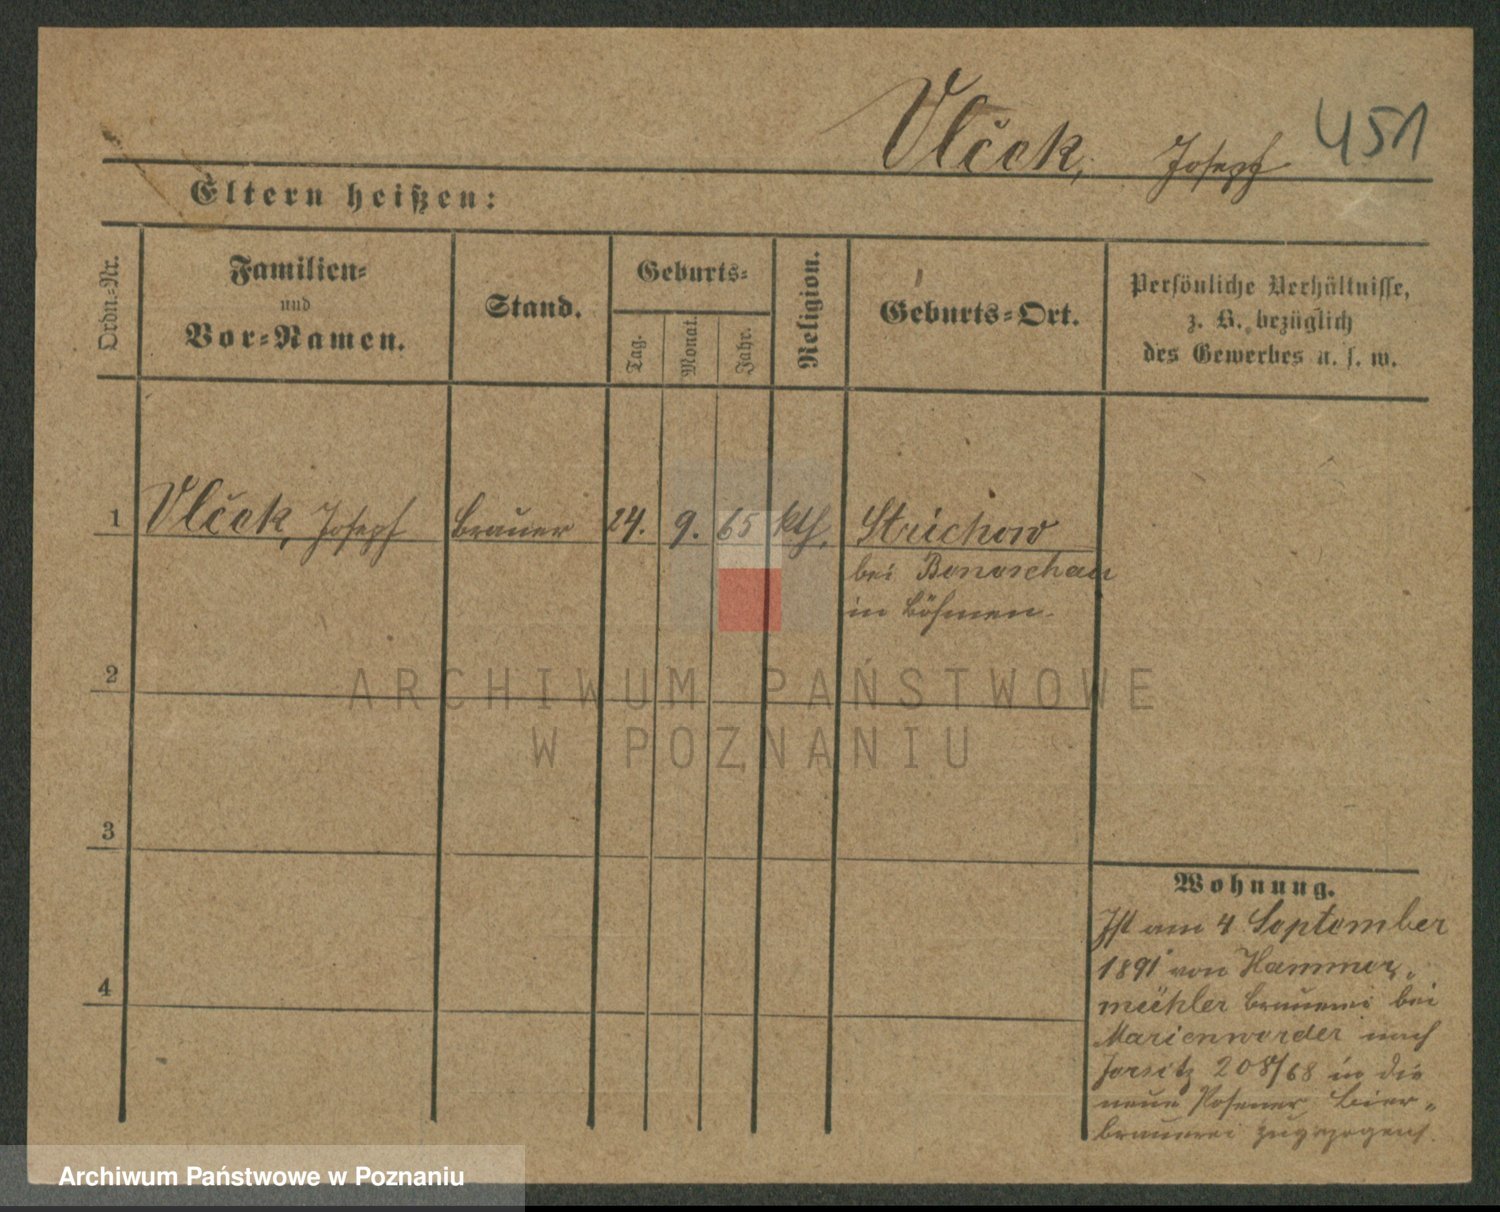 Vlček, Joseph 451
Eltern heißen:
Ordn.-Nr.
Familien-
und
Vor-Namen.
Stand.
Geburts-
Tag.
Monat.
Jahr.
Religion.
Geburts-Ort.
Persönliche Verhältnisse,
z. B. bezüglich
des Gewerbes u. s. w.
1 Vlček, Joseph Brauer 24. 9. 65 kth. Strichow
bei Benoschau
in Böhmen.
2
ARCHIWUM PAŃSTWOWE
W POZNANIU
3
4
Wohnung.
Ist am 4 September
1891 von Hammer-
mühler Brauerei bei
Marienwerder nach
Jersitz 208/68 in die
neue Posener Bier-
brauerei zugezogen.
Archiwum Państwowe w Poznaniu